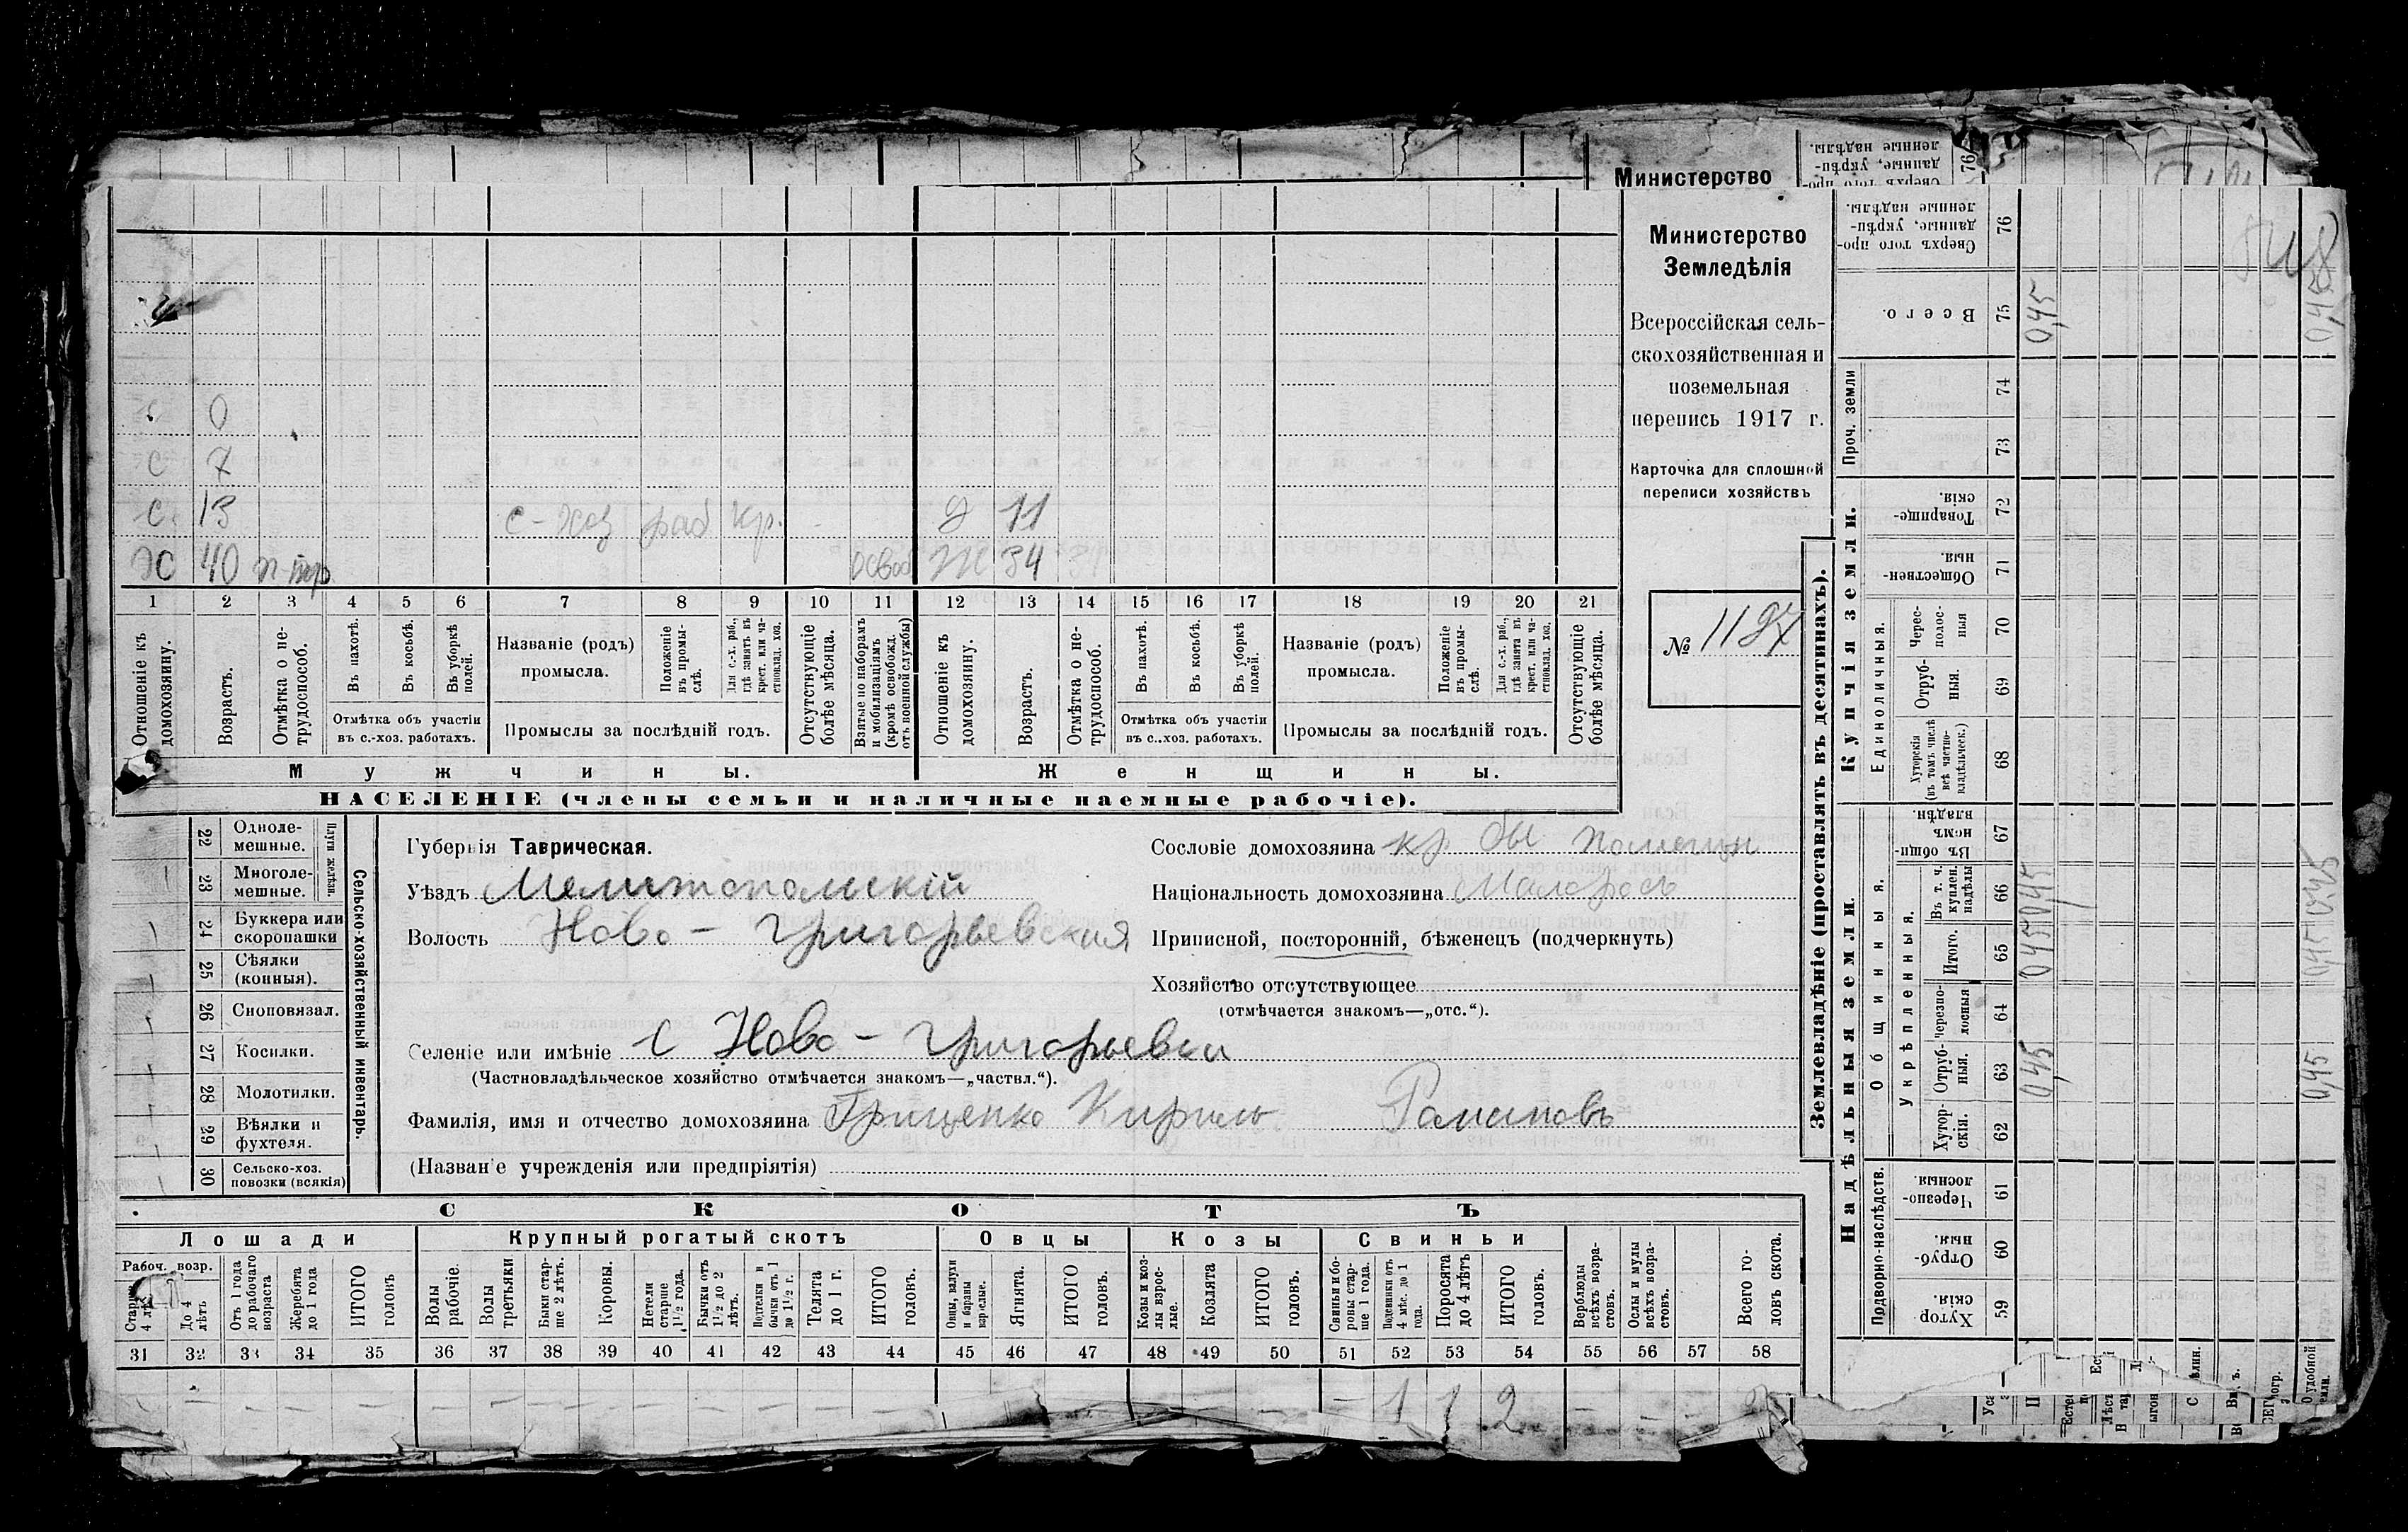 Министерство
Министерство
Земледѣлія
Всероссійская сель-
скохозяйственная и
поземельная
перепись 1917 г.
Карточка для сплошной
переписи хозяйствъ
№ 1197
0
с 7
с. 13 с-хоз раб кр. д 11
40 освоб Ж 34
1 2 3 4 5 6 7 8 9 10 11 12 13 14 15 16 17 18 19 20 21
Отношеніе къ домохозяину.
Возрастъ.
Отмѣтка о не-трудоспособ.
Въ пахотѣ.
Въ косьбѣ.
Въ уборкѣ полей.
Отмѣтка объ участіи въ с.-хоз. работахъ.
Названіе (родъ) промысла.
Положеніе въ промы-слѣ.
Для с.-х. раб., гдѣ занятъ въ крест. или ча-стновлад. хоз.
Промыслы за послѣдній годъ.
Отсутствующіе болѣе мѣсяца.
Взятые по наборамъ и мобилизаціямъ (кромѣ освобожд. отъ военной службы)
Отношеніе къ домохозяину.
Возрастъ.
Отмѣтка о не-трудоспособ.
Въ пахотѣ.
Въ косьбѣ.
Въ уборкѣ полей.
Отмѣтка объ участіи въ с..хоз. работахъ.
Названіе (родъ) промысла.
Положеніе въ промы-слѣ.
Для с.-х. раб., гдѣ занята въ крест. или ча-стновлад. хоз.
Промыслы за послѣдній годъ.
Отсутствующіе болѣе мѣсяца.
Мужчины.
Женщины.
НАСЕЛЕНІЕ (члены семьи и наличные наемные рабочіе).
22 Одноле-мешные.
23 Многоле-мешные.
Плуги желѣзн.
24 Буккера или скоропашки
25 Сѣялки (конныя).
26 Сноповязал.
27 Косилки.
28 Молотилки.
29 Вѣялки и фухтеля.
30 Сельско-хоз. повозки (всякія)
Сельско-хозяйственный инвентарь.
Губернія Таврическая.
Уѣздъ Мелитопольскій
Волость Ново-Григорьевская
Селеніе или имѣніе с Ново-Григорьевка
(Частновладѣльческое хозяйство отмѣчается знакомъ—„частвл.“).
Фамилія, имя и отчество домохозяина Гриценко Кирилъ
(Назван е учрежденія или предпріятія)
Сословіе домохозяина кр. бы
Національность домохозяина Малоросъ
Приписной, посторонній, бѣженецъ (подчеркнуть)
Хозяйство отсутствующее
(отмѣчается знакомъ—„отс.“).
СКОТЪ
Лошади
Крупный рогатый скотъ
Овцы
Козы
Свиньи
Рабоч. возр.
До 4 лѣтъ
Отъ 1 года до рабочаго возраста
Жеребята до 1 года
ИТОГО головъ
Волы рабочіе.
Волы третьяки
Быки стар-ше 2 лѣтъ.
Коровы.
Нетели старше 1½ года.
Бычки отъ 1½ до 2 лѣтъ.
Подтелки и бычки отъ 1 до 1½ г.
Телята до 1 г.
ИТОГО головъ.
Овцы, валухи и бараны взрослые.
Ягнята.
ИТОГО головъ.
Козы и коз-лы взрос-лые.
Козлята
ИТОГО головъ.
Свиньи и бо-ровы стар-ше 1 года.
Подсвинки отъ 4 мѣс. до 1 года.
Поросята до 4 лѣтъ
ИТОГО головъ.
Верблюды всѣхъ возра-стовъ.
Ослы и мулы всѣхъ возра-стовъ.
Всего го-ловъ скота.
31 32 33 34 35 36 37 38 39 40 41 42 43 44 45 46 47 48 49 50 51 52 53 54 55 56 57 58
1 1 2
Землевладѣніе (проставлять въ десятинахъ).
Надѣльныя земли.
Купчія земли.
Проч. земли
Подворно-наслѣдств.
Общинныя.
Укрѣпленныя.
Единоличныя.
Сверхъ того про-данные, укрѣп-ленные надѣлы. 76
Всего. 75 0,45
74
73
Товарище-скія. 72
Обществен-ныя. 71
Черес-полос-ныя 70
Отруб-ныя. 69
Хуторскія (въ томъ числѣ всѣ частно-владѣльческ.) 68
Въ общи-номъ владѣн. 67
Въ т. ч. куплен. надѣлы 66 0,45
Итого. 65 0,45
Черезпо-лосныя 64
Отруб-ныя. 63 0,45
Хутор-скія. 62
Черезпо-лосныя. 61
Отруб-ныя. 60
Хутор-скія. 59
0,45
0,45 0,45
0,45